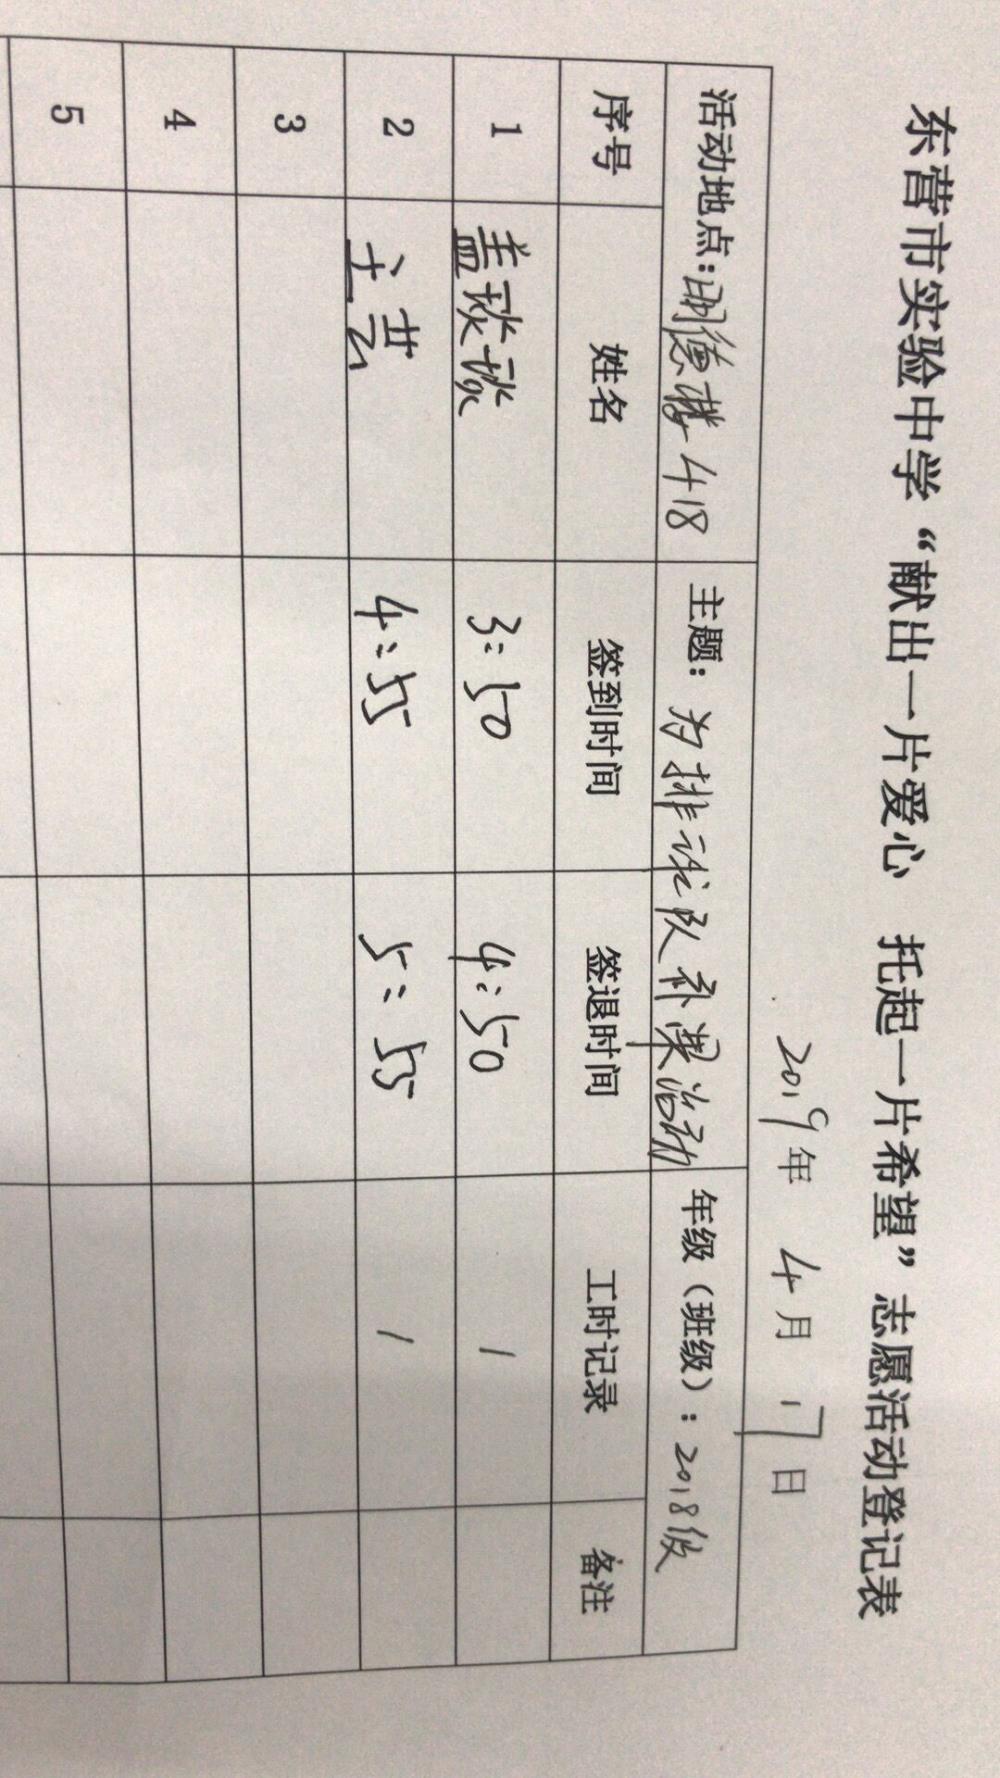 东营市实验中学“献出一片爱心 托起一片希望”志愿活动登记表
2019年 4月 17日
活动地点:明德楼418 主题:为排球队补课活动 年级(班级):2018级
序号 姓名 签到时间 签退时间 工时记录 备注
1 盖琰琰 3:50 4:50 1
2 王芸 4:55 5:55 1
3
4
5